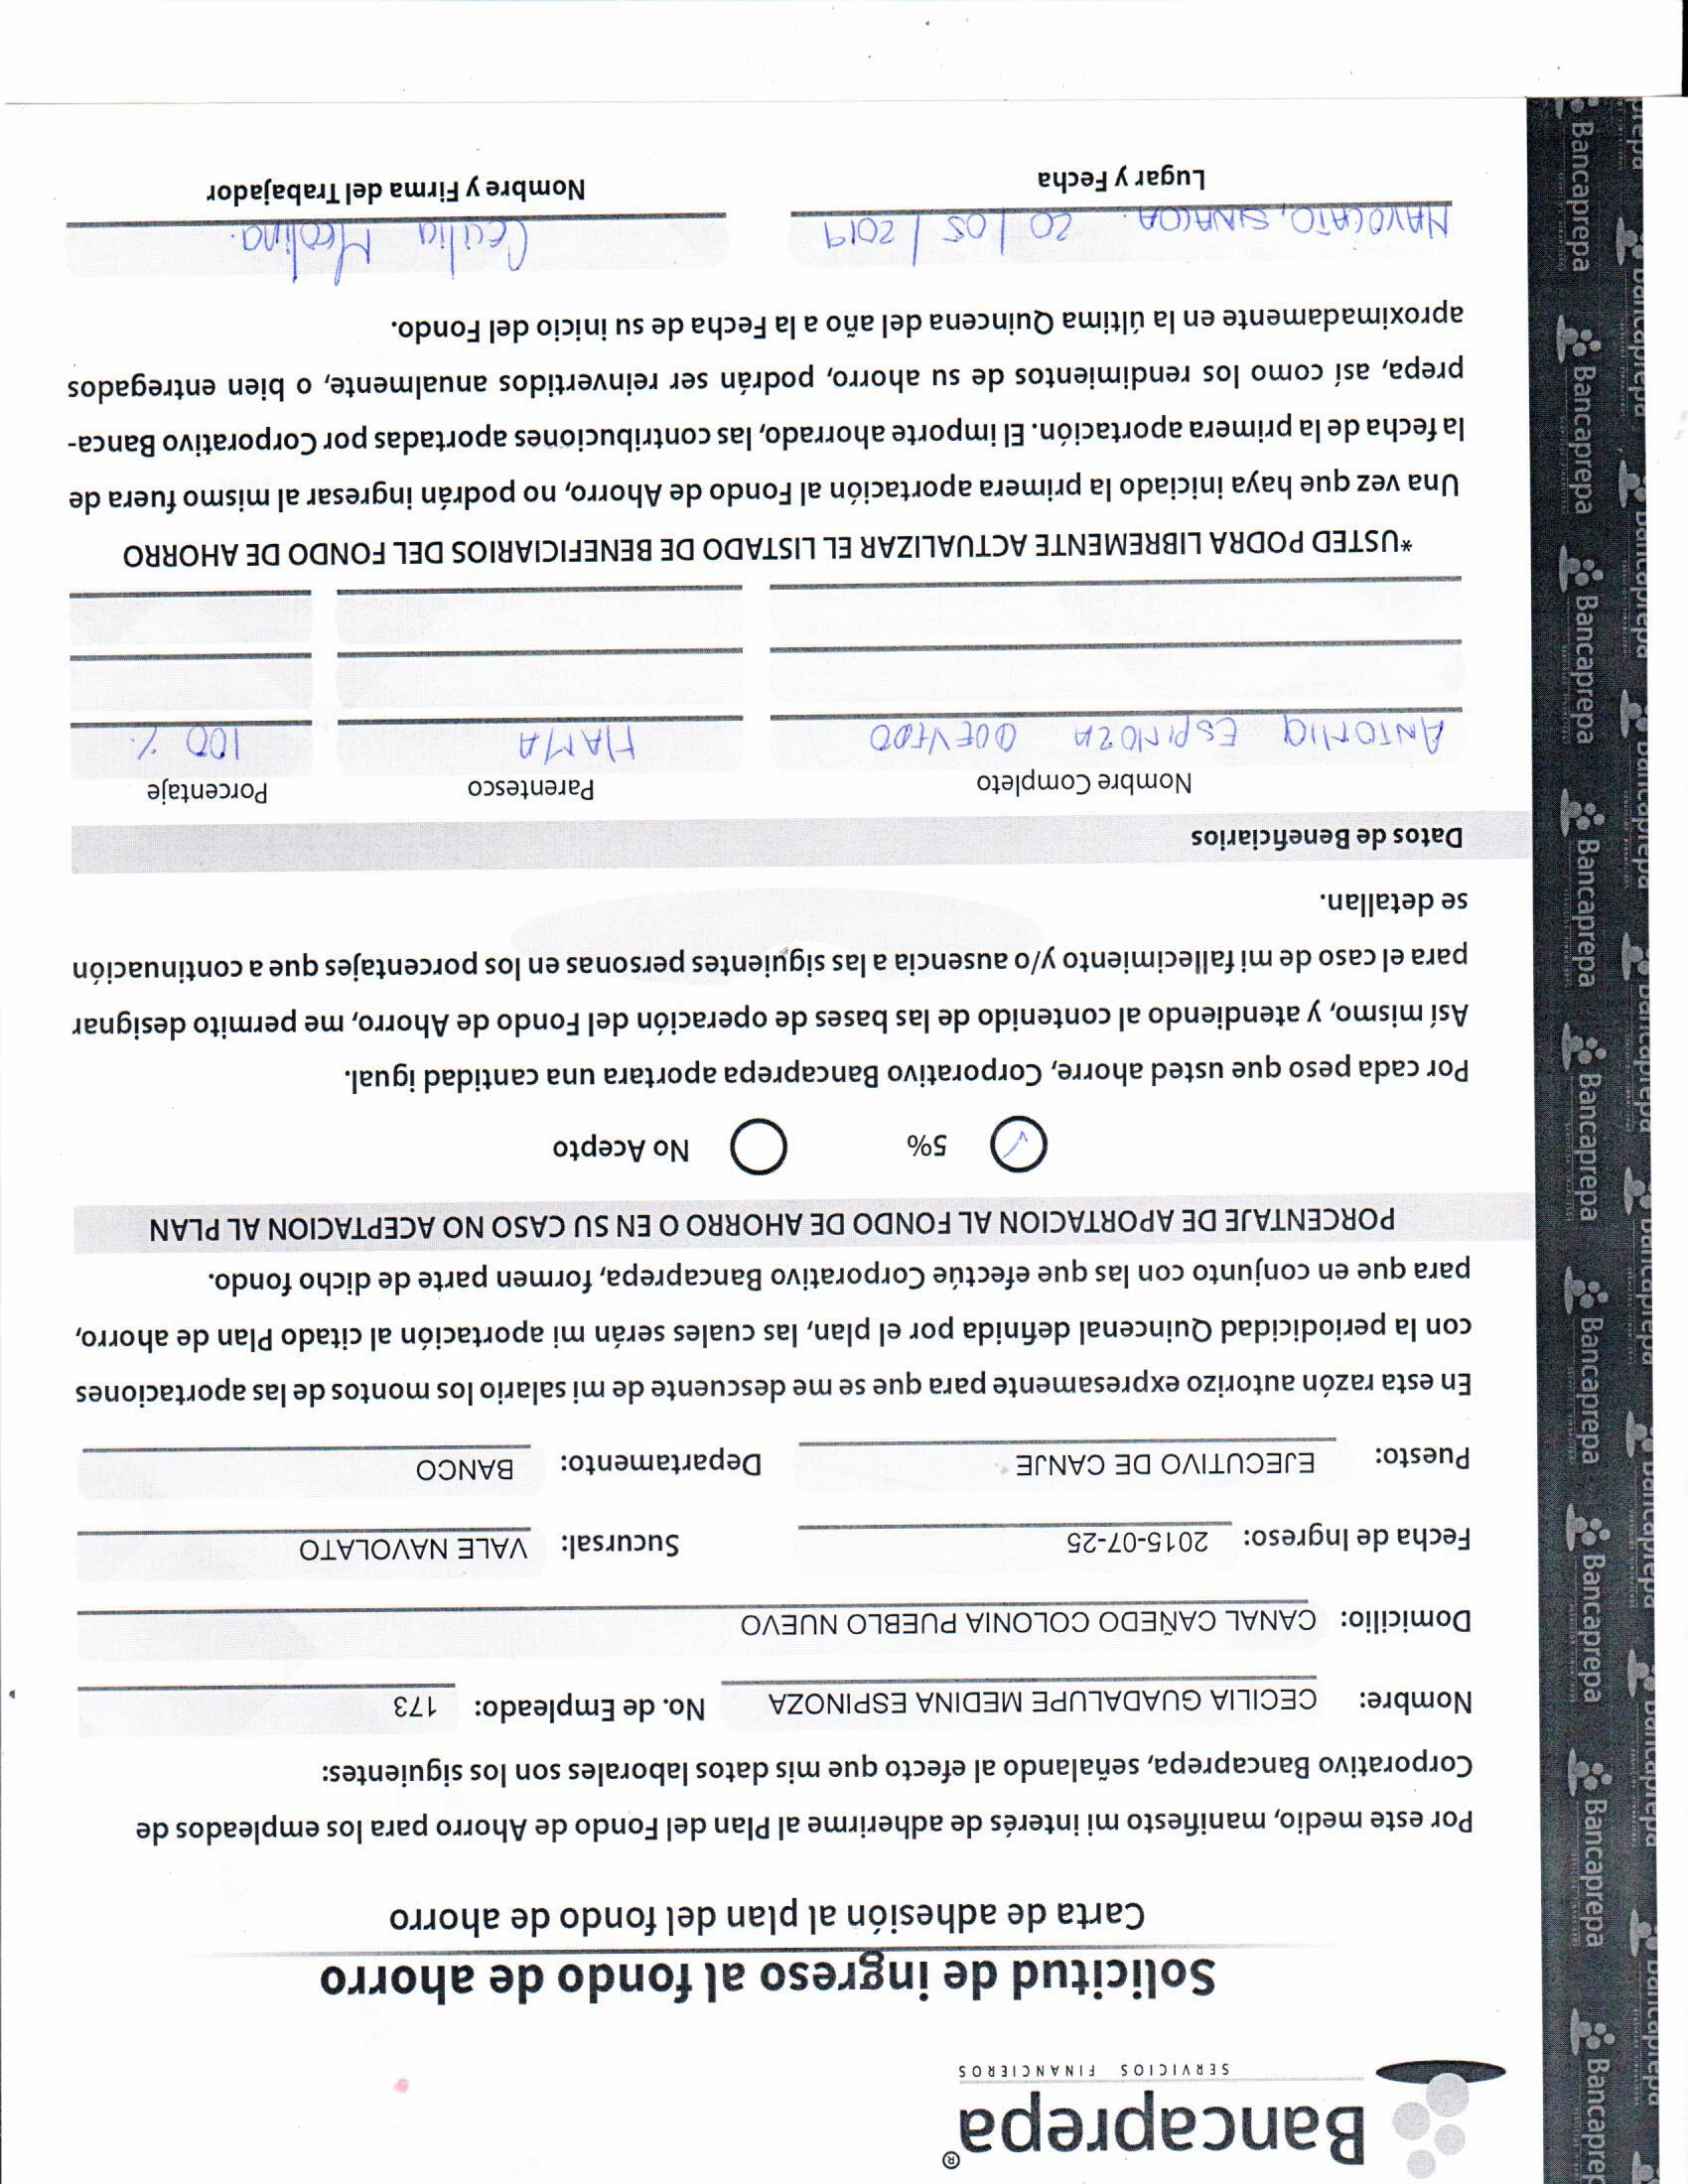 Bancaprepa®
SERVICIOS FINANCIEROS
Solicitud de ingreso al fondo de ahorro
Carta de adhesión al plan del fondo de ahorro
Por este medio, manifiesto mi interés de adherirme al Plan del Fondo de Ahorro para los empleados de
Corporativo Bancaprepa, señalando al efecto que mis datos laborales son los siguientes:
Nombre: CECILIA GUADALUPE MEDINA ESPINOZA No. de Empleado: 173
Domicilio: CANAL CAÑEDO COLONIA PUEBLO NUEVO
Fecha de Ingreso: 2015-07-25 Sucursal: VALE NAVOLATO
Puesto: EJECUTIVO DE CANJE Departamento: BANCO
En esta razón autorizo expresamente para que se me descuente de mi salario los montos de las aportaciones
con la periodicidad Quincenal definida por el plan, las cuales serán mi aportación al citado Plan de ahorro,
para que en conjunto con las que efectúe Corporativo Bancaprepa, formen parte de dicho fondo.
PORCENTAJE DE APORTACION AL FONDO DE AHORRO O EN SU CASO NO ACEPTACION AL PLAN
✓ 5% No Acepto
Por cada peso que usted ahorre, Corporativo Bancaprepa aportara una cantidad igual.
Así mismo, y atendiendo al contenido de las bases de operación del Fondo de Ahorro, me permito designar
para el caso de mi fallecimiento y/o ausencia a las siguientes personas en los porcentajes que a continuación
se detallan.
Datos de Beneficiarios
Nombre Completo Parentesco Porcentaje
ANTONIA ESPINOZA QUEVEDO MAMA 100 %
*USTED PODRA LIBREMENTE ACTUALIZAR EL LISTADO DE BENEFICIARIOS DEL FONDO DE AHORRO
Una vez que haya iniciado la primera aportación al Fondo de Ahorro, no podrán ingresar al mismo fuera de
la fecha de la primera aportación. El importe ahorrado, las contribuciones aportadas por Corporativo Banca-
prepa, así como los rendimientos de su ahorro, podrán ser reinvertidos anualmente, o bien entregados
aproximadamente en la última Quincena del año a la Fecha de su inicio del Fondo.
NAVOLATO, SINALOA. 20/05/2019 Cecilia Medina.
Lugar y Fecha Nombre y Firma del Trabajador